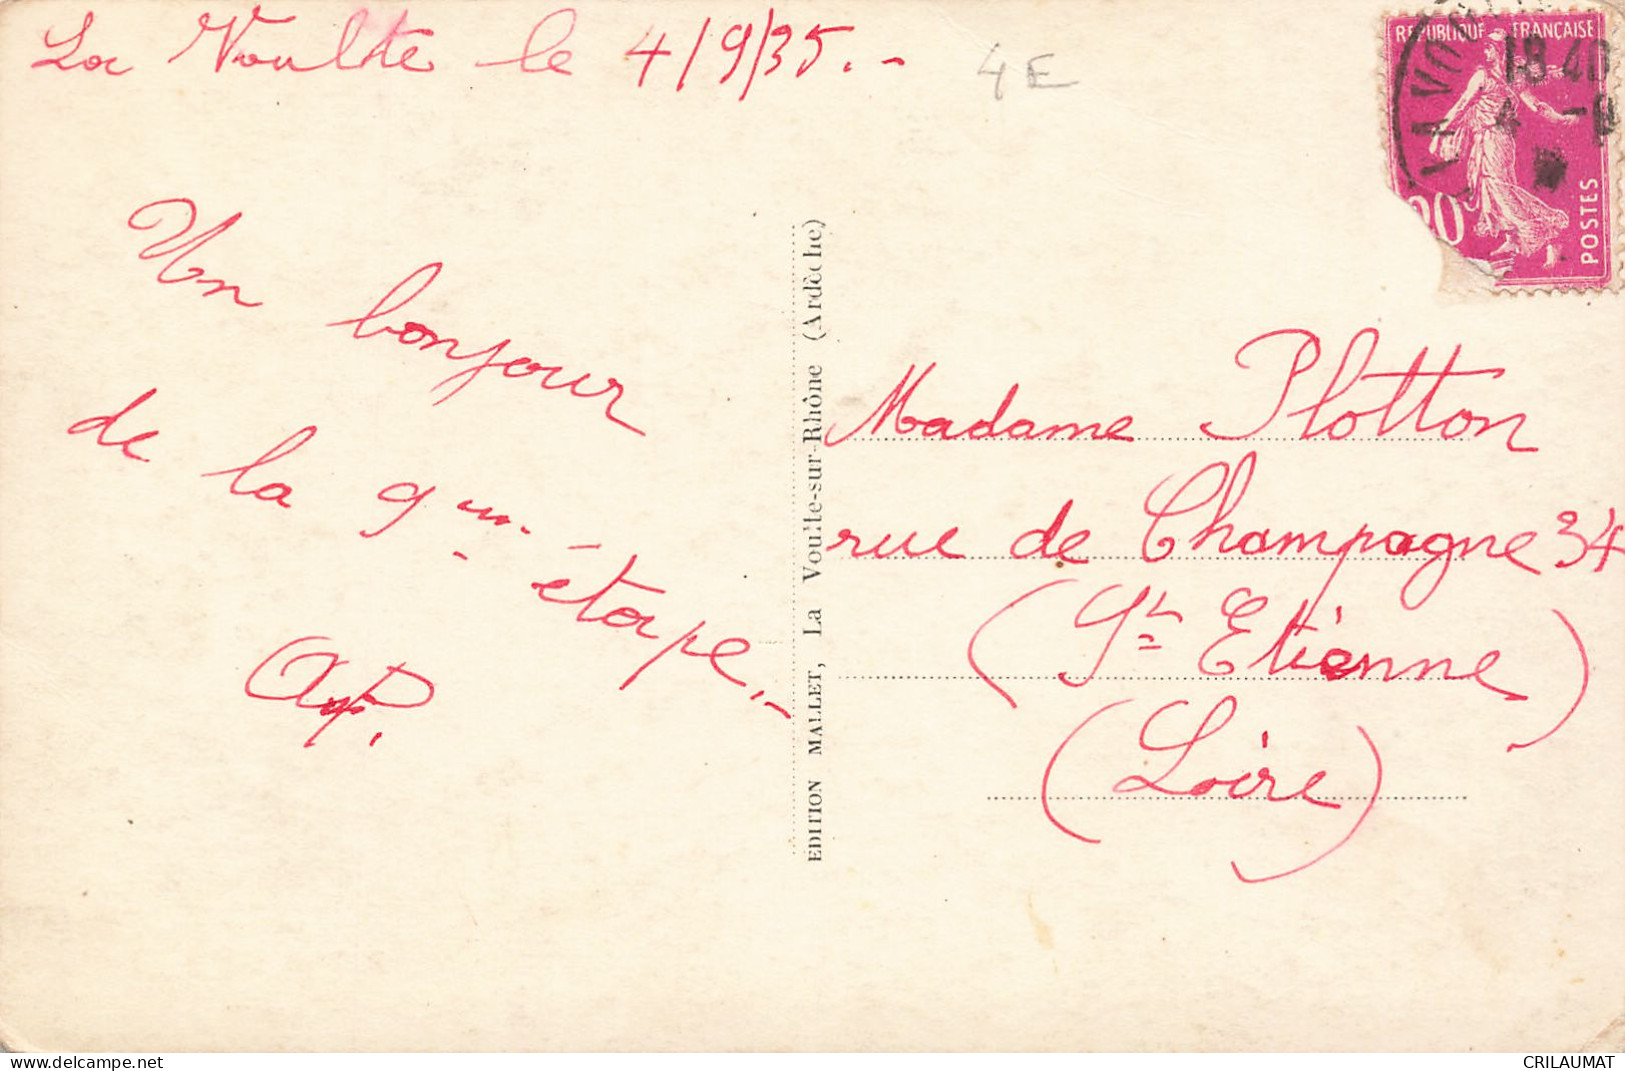 La Voulte le 4/9/35.-
4 E
REPUBLIQUE FRANÇAISE
LA VOU
18 40
4 -9
20
POSTES
Un bonjour
de la 9me étape.-
AP.
EDITION MALLET, La Voulte-sur-Rhône (Ardèche)
Madame Plotton
rue de Champagne 34
(St Etienne)
(Loire)
www.delcampe.net
CRILAUMAT